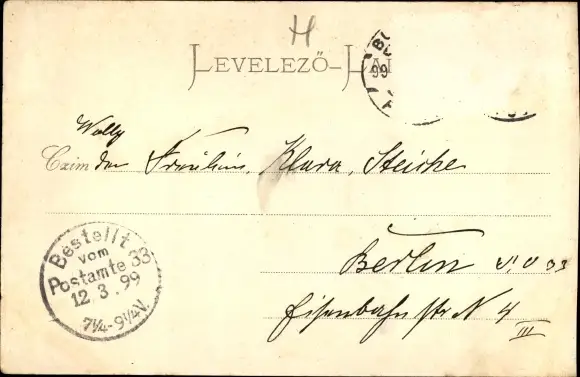 H
LEVELEZŐ-LA
BU
99
Wolly
Czim den Fräulein, Klara, Steiche
Berlin S.O 33
Eisenbahnstr. N 4
III
Bestellt
vom
Postamte 33
12.3.99
7¼-9¼V.